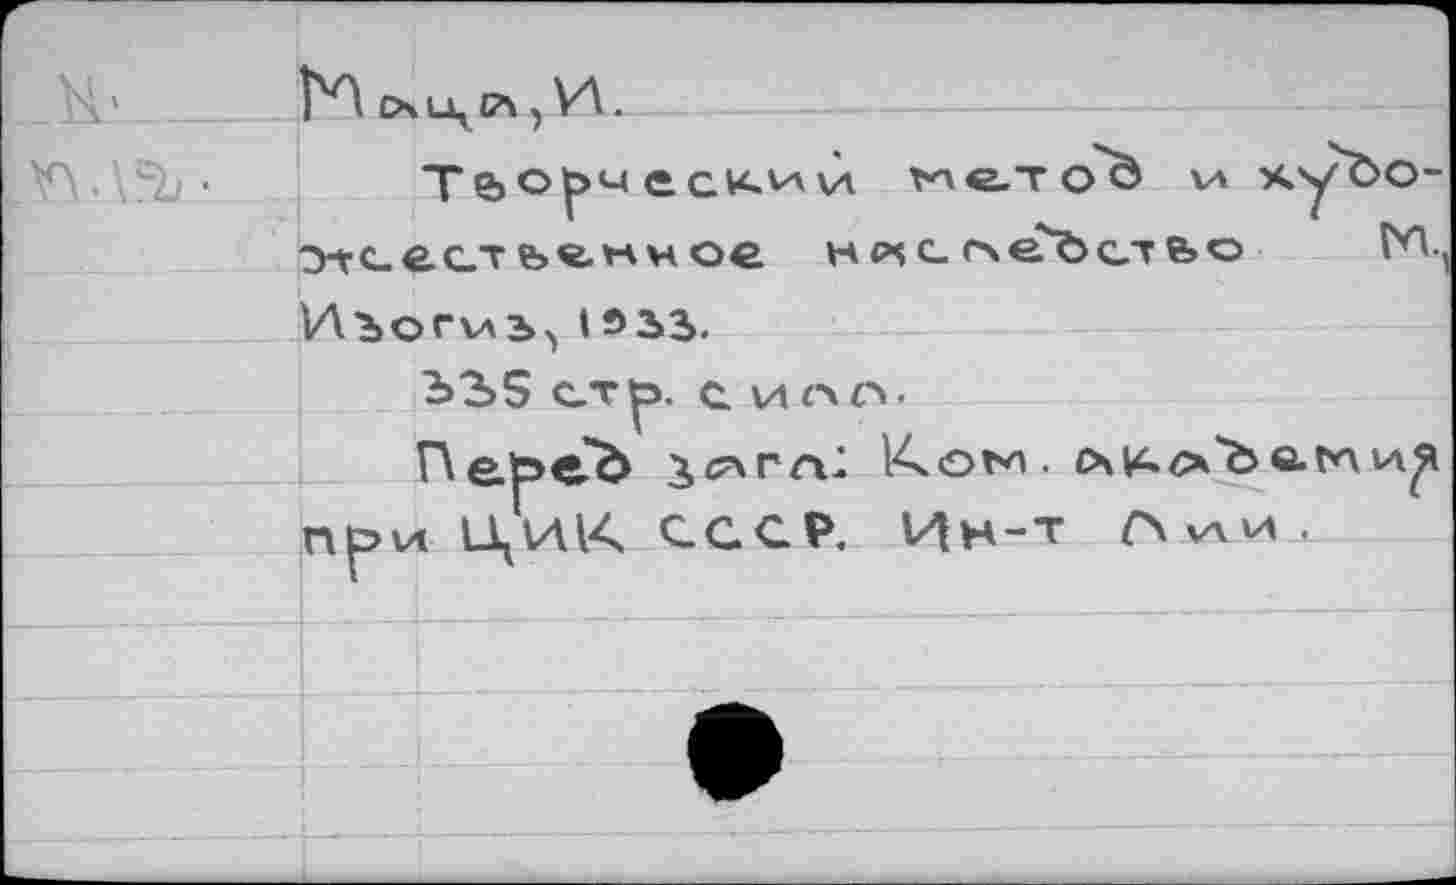 И.
Маца, И.
М.18.
Творческий метод и худо-
жественное наследство М.,
Изогиз, 1933.
335 стр. с илл.
Перед загл: Ком. академия
при ЦИК СССР. Ин-т Лии.